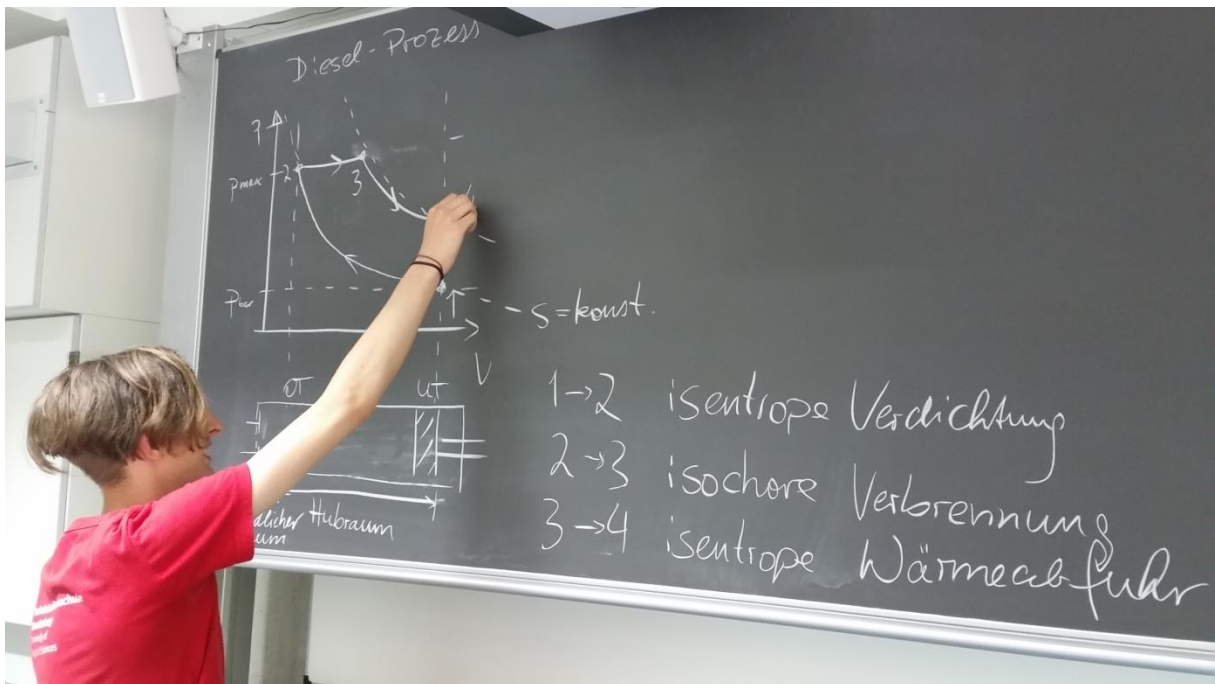 Diesel-Prozess
P
pmax
2
3
pbar
s=konst.
V
OT
UT
1→2 isentrope Verdichtung
2→3 isochore Verbrennung
3→4 isentrope Wärmeabfuhr
Hubraum